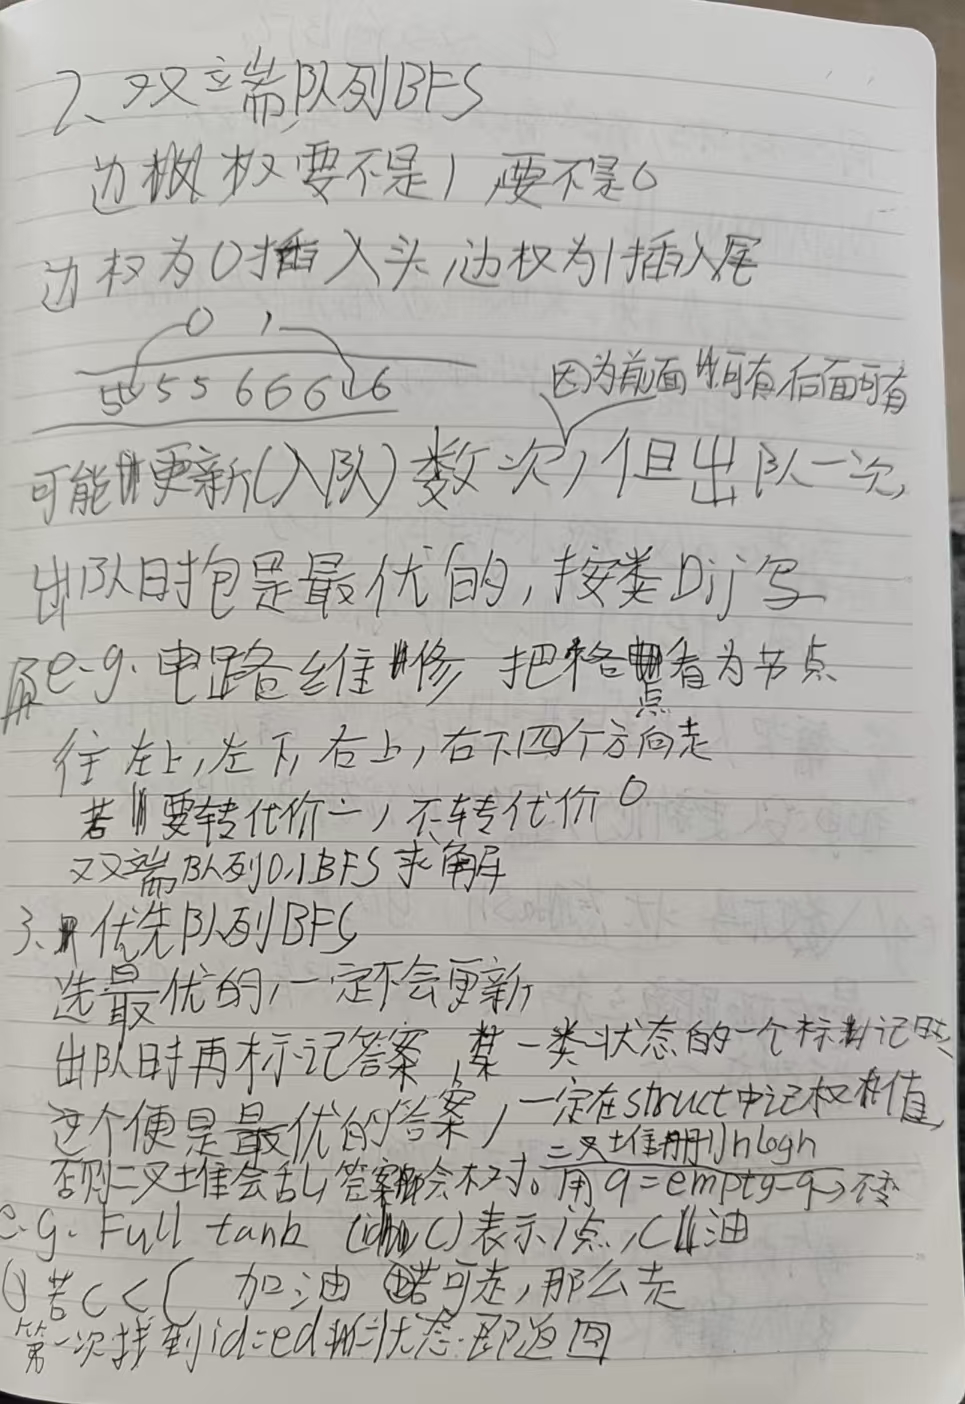 2、双端队列BFS
边权 权要不是1 要不是0
边权为0插入头,边权为1插入尾
0 1
5 5 5 6 6 6 6
因为前面可有,后面可有
可能更新(入队)数次,但出队一次,
出队时抱是最优的,按类Dij写
e.g.电路维修 把格点看为节点
往左上,左下,右上,右下四个方向走
若要转代价一,不转代价0
双端队列0,1BFS求解
3、优先队列BFS
选最优的,一定不会更新
出队时再标记答案,某一类状态的一个标记
这个便是最优的答案,一定在struct中记权值,
二叉堆删nlogn
否则二叉堆会乱,答案会不对。用q=empty-q→不变
e.g. Full tank (id,C)表示1点,C油
①若c<C 加油 ②若可走,那么走
第一次找到id=ed状态即返回